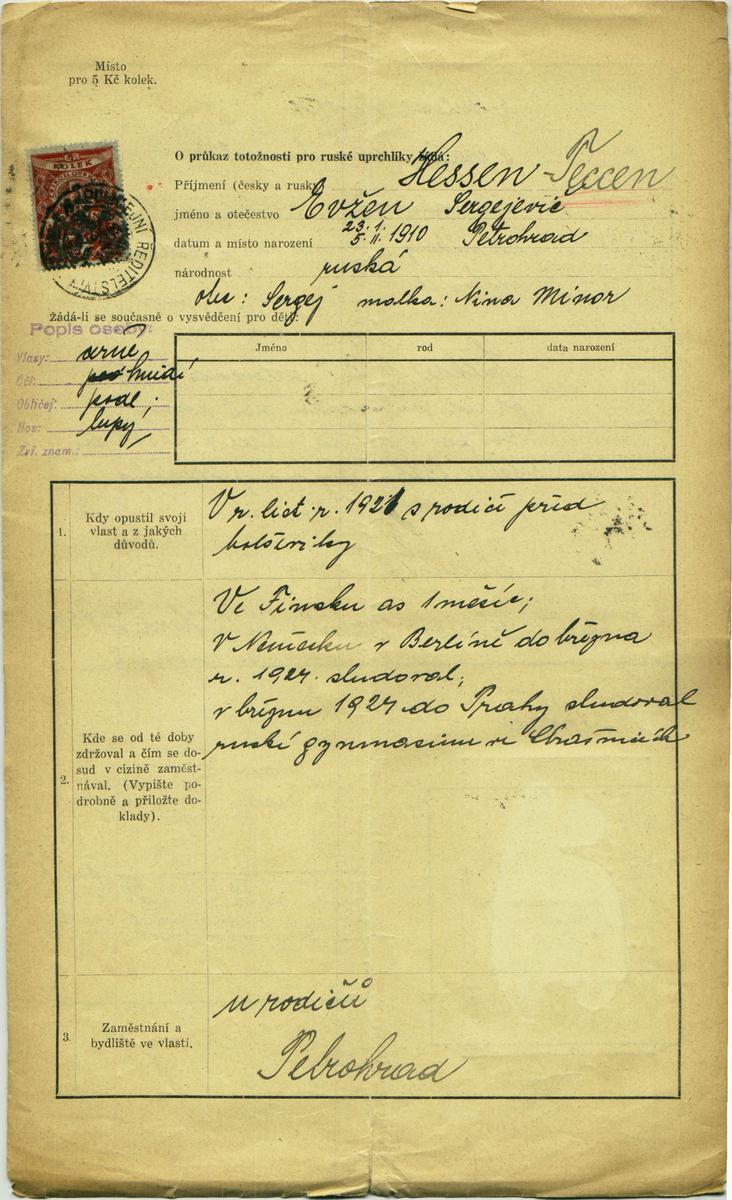 Místo
pro 5 Kč kolek.
KOLEK
POLICEJNÍ ŘEDITELSTVÍ
O průkaz totožnosti pro ruské uprchlíky žádá:
Příjmení (česky a rusky) Hessen - Гессен
jméno a otečestvo Evžen Sergejevič
23. 1.
datum a místo narození 5. II. 1910 Petrohrad
národnost ruská
otec: Sergej matka: Nina Minor
Žádá-li se současně o vysvědčení pro děti:
Popis osoby:
Vlasy: černé
Oči: hnědé
Obličej: podl.
Nos: tupý
Zvl. znam.:
Jméno rod data narození
1. Kdy opustil svoji
vlast a z jakých
důvodů.
V r. 1921 s rodiči před
bolševiky
2. Kde se od té doby
zdržoval a čím se do-
sud v cizině zaměst-
nával. (Vypište po-
drobně a přiložte do-
klady).
Ve Finsku as 1 měsíc;
v Německu v Berlíně do března
r. 1924 studoval;
v březnu 1924 do Prahy studoval
ruské gymnasium ve Strašnicích
3. Zaměstnání a
bydliště ve vlasti.
u rodičů
Petrohrad